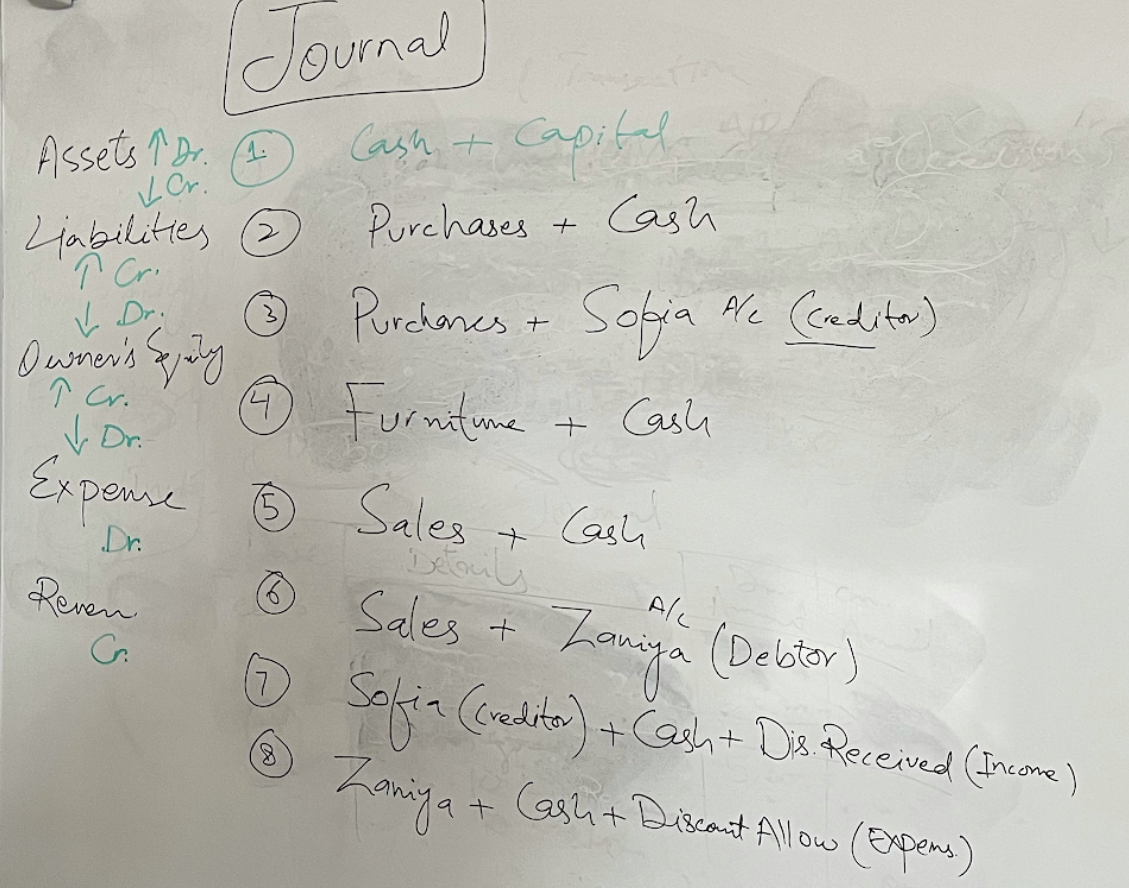 Journal
Assets ↑ Dr.
↓ Cr.
Liabilities
↑ Cr.
↓ Dr.
Owner's Equity
↑ Cr.
↓ Dr.
Expense
Dr.
Reven
Cr.
① Cash + Capital
② Purchases + Cash
③ Purchases + Sofia A/c (Creditor)
④ Furniture + Cash
⑤ Sales + Cash
Details
⑥ Sales + Zaniya A/c (Debtor)
⑦ Sofia (Creditor) + Cash + Dis. Received (Income)
⑧ Zaniya + Cash + Discount Allow (Expens.)